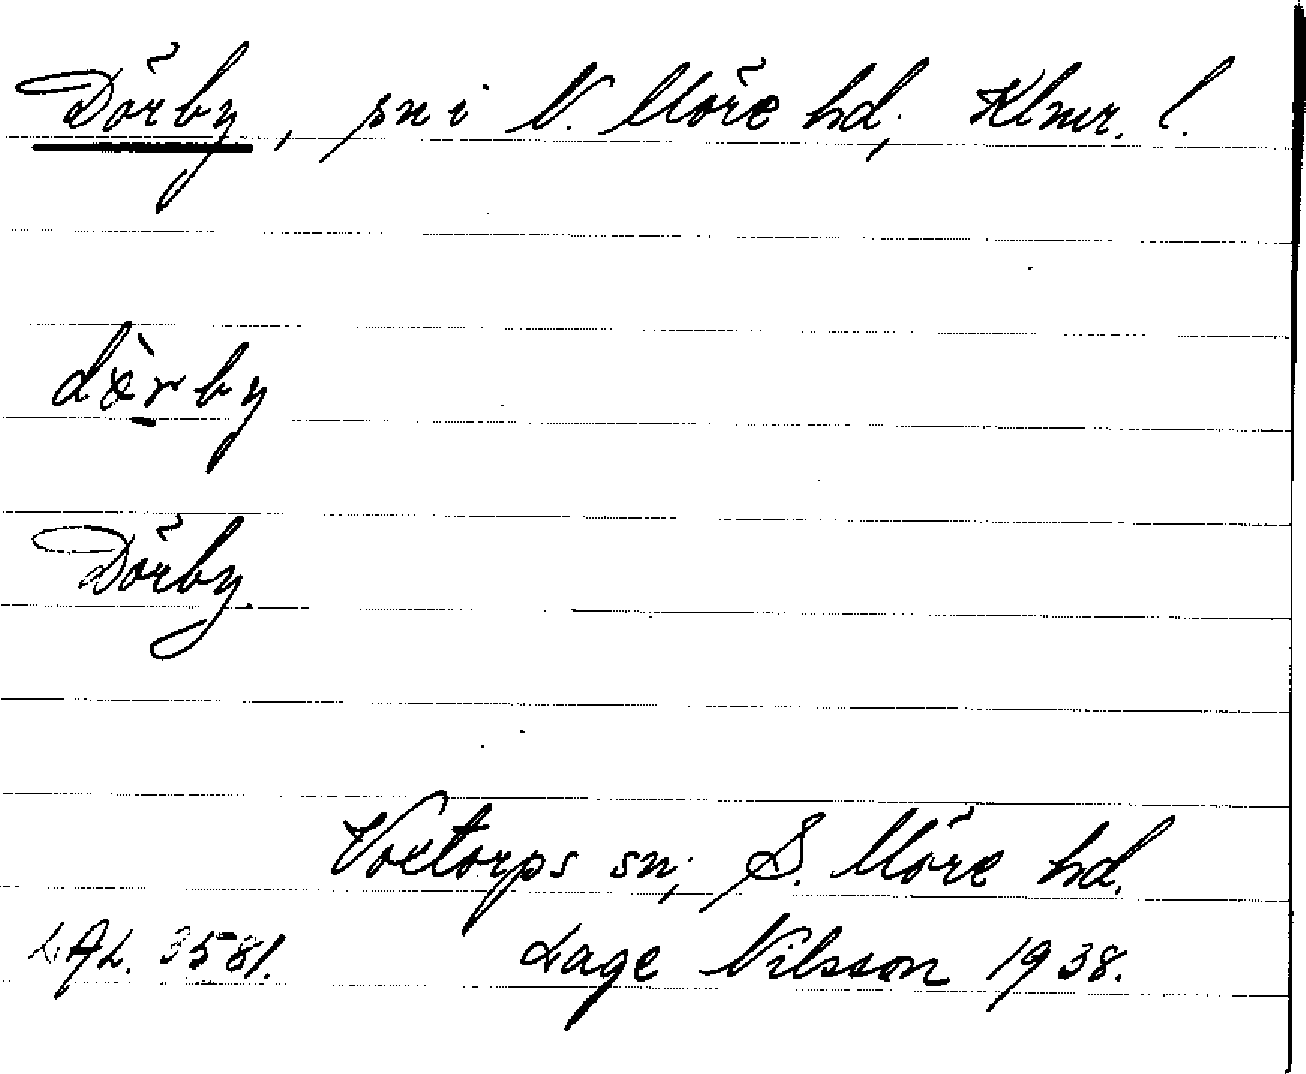 Dörby, sn i N. Möre hd, Klmr. l.
dø̀rby
Dörby
Voxtorps sn, S. Möre hd.
LAL. 3581. Lage Nilsson 1938.